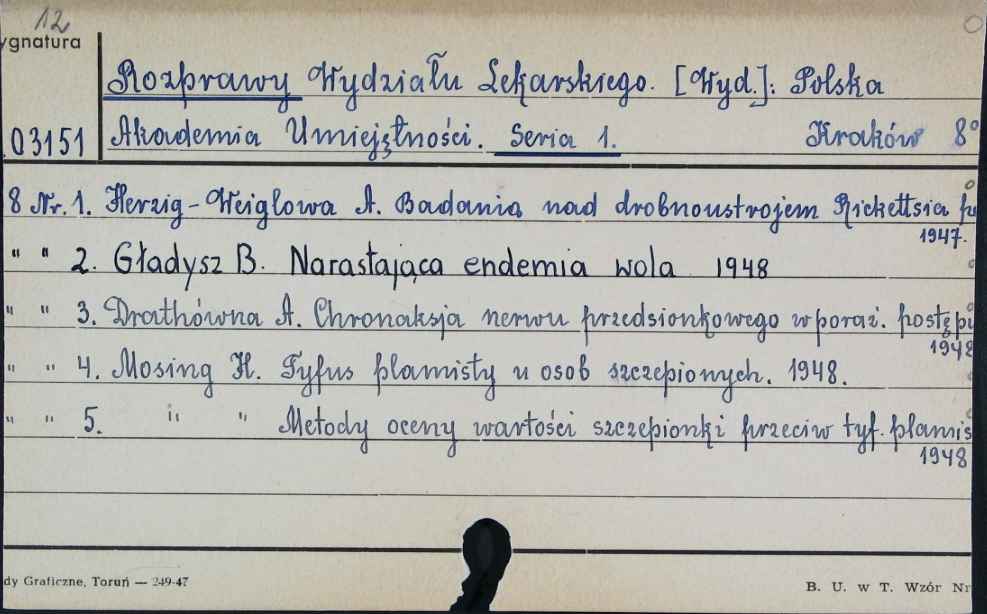 12
ygnatura
Rozprawy Wydziału Lekarskiego. [Wyd.]: Polska
03151 Akademia Umiejętności. Seria 1. Kraków 8°
8 Nr. 1. Herzig-Weiglowa A. Badania nad drobnoustrojem Rickettsia
1947.
" " 2. Gładysz B. Narastająca endemia wola 1948
" " 3. Drathówna A. Chronaksja nerwu przedsionkowego w poraż. postępu
1948
" " 4. Mosing H. Tyfus plamisty u osob szczepionych. 1948.
" " 5. " " Metody oceny wartości szczepionki przeciw tyf. plamis
1948
dy Graficzne, Toruń — 249-47
B. U. w T. Wzór Nr